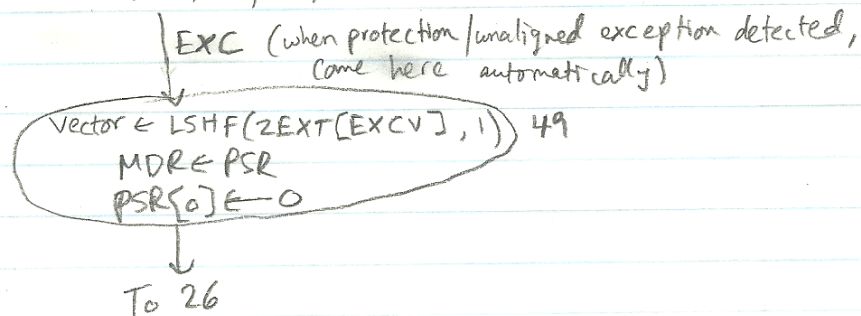 EXC (when protection/unaligned exception detected,
come here automatically)
Vector ← LSHF(ZEXT[EXCV], 1) 49
MDR ← PSR
PSR[0] ← 0
To 26